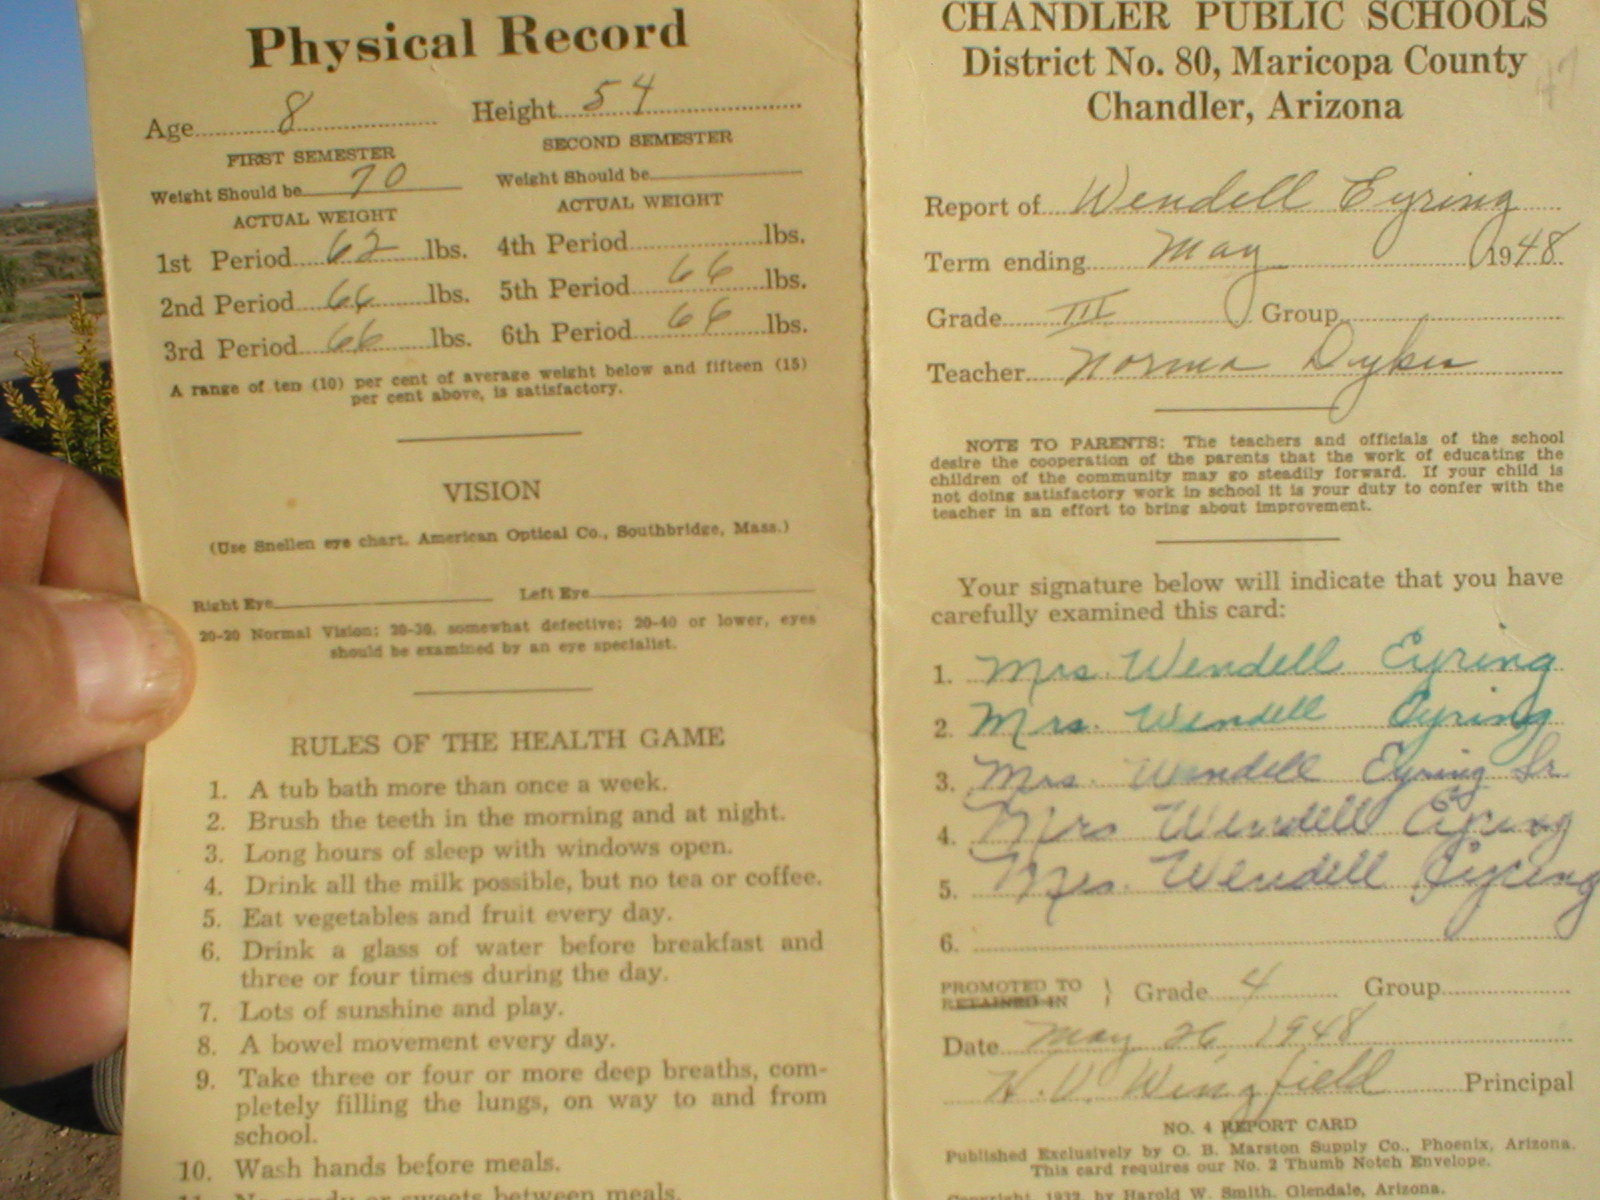 Physical Record
Age 8 Height 54
FIRST SEMESTER SECOND SEMESTER
Weight Should be 70 Weight Should be
ACTUAL WEIGHT ACTUAL WEIGHT
1st Period 62 lbs. 4th Period lbs.
2nd Period 66 lbs. 5th Period 66 lbs.
3rd Period 66 lbs. 6th Period 66 lbs.
A range of ten (10) per cent of average weight below and fifteen (15)
per cent above, is satisfactory.
VISION
(Use Snellen eye chart. American Optical Co., Southbridge, Mass.)
Right Eye Left Eye
20-20 Normal Vision; 20-30, somewhat defective; 20-40 or lower, eyes
should be examined by an eye specialist.
RULES OF THE HEALTH GAME
1. A tub bath more than once a week.
2. Brush the teeth in the morning and at night.
3. Long hours of sleep with windows open.
4. Drink all the milk possible, but no tea or coffee.
5. Eat vegetables and fruit every day.
6. Drink a glass of water before breakfast and
three or four times during the day.
7. Lots of sunshine and play.
8. A bowel movement every day.
9. Take three or four or more deep breaths, com-
pletely filling the lungs, on way to and from
school.
10. Wash hands before meals.
11. No candy or sweets between meals.
CHANDLER PUBLIC SCHOOLS
District No. 80, Maricopa County
Chandler, Arizona
Report of Wendell Eyring
Term ending May 1948
Grade III Group
Teacher Norma
NOTE TO PARENTS: The teachers and officials of the school
desire the cooperation of the parents that the work of educating the
children of the community may go steadily forward. If your child is
not doing satisfactory work in school it is your duty to confer with the
teacher in an effort to bring about improvement.
Your signature below will indicate that you have
carefully examined this card:
1. Mrs. Wendell Eyring
2. Mrs. Wendell Eyring
3. Mrs. Wendell Eyring Sr
4. Mrs Wendell Eyring
5. Mrs. Wendell Eyring
6.
PROMOTED TO
RETAINED IN } Grade 4 Group
Date May 26, 1948
H. V. Wingfield Principal
NO. 4 REPORT CARD
Published Exclusively by O. B. Marston Supply Co., Phoenix, Arizona.
This card requires our No. 2 Thumb Notch Envelope.
Copyright, 1932, by Harold W. Smith, Glendale, Arizona.